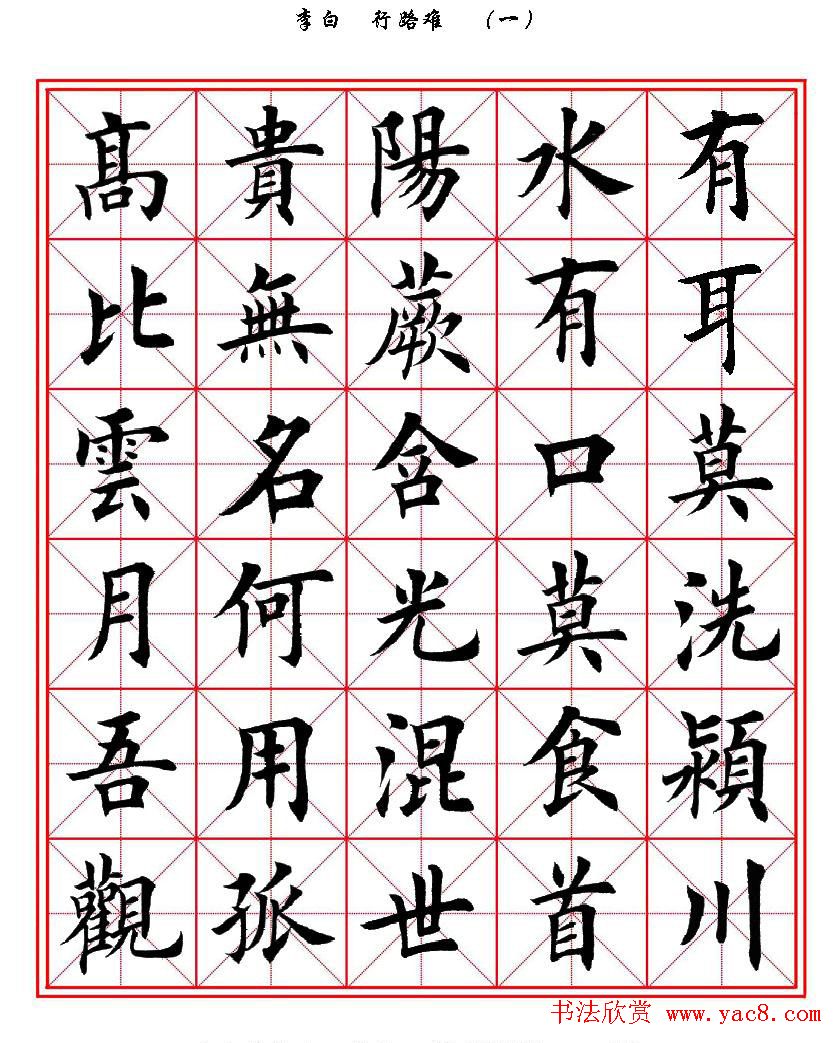 李白 行路难 （一）
有耳莫洗潁川
水有口莫食首
陽蕨含光混世
貴無名何用孤
髙比雲月吾觀
书法欣赏 www.yac8.com